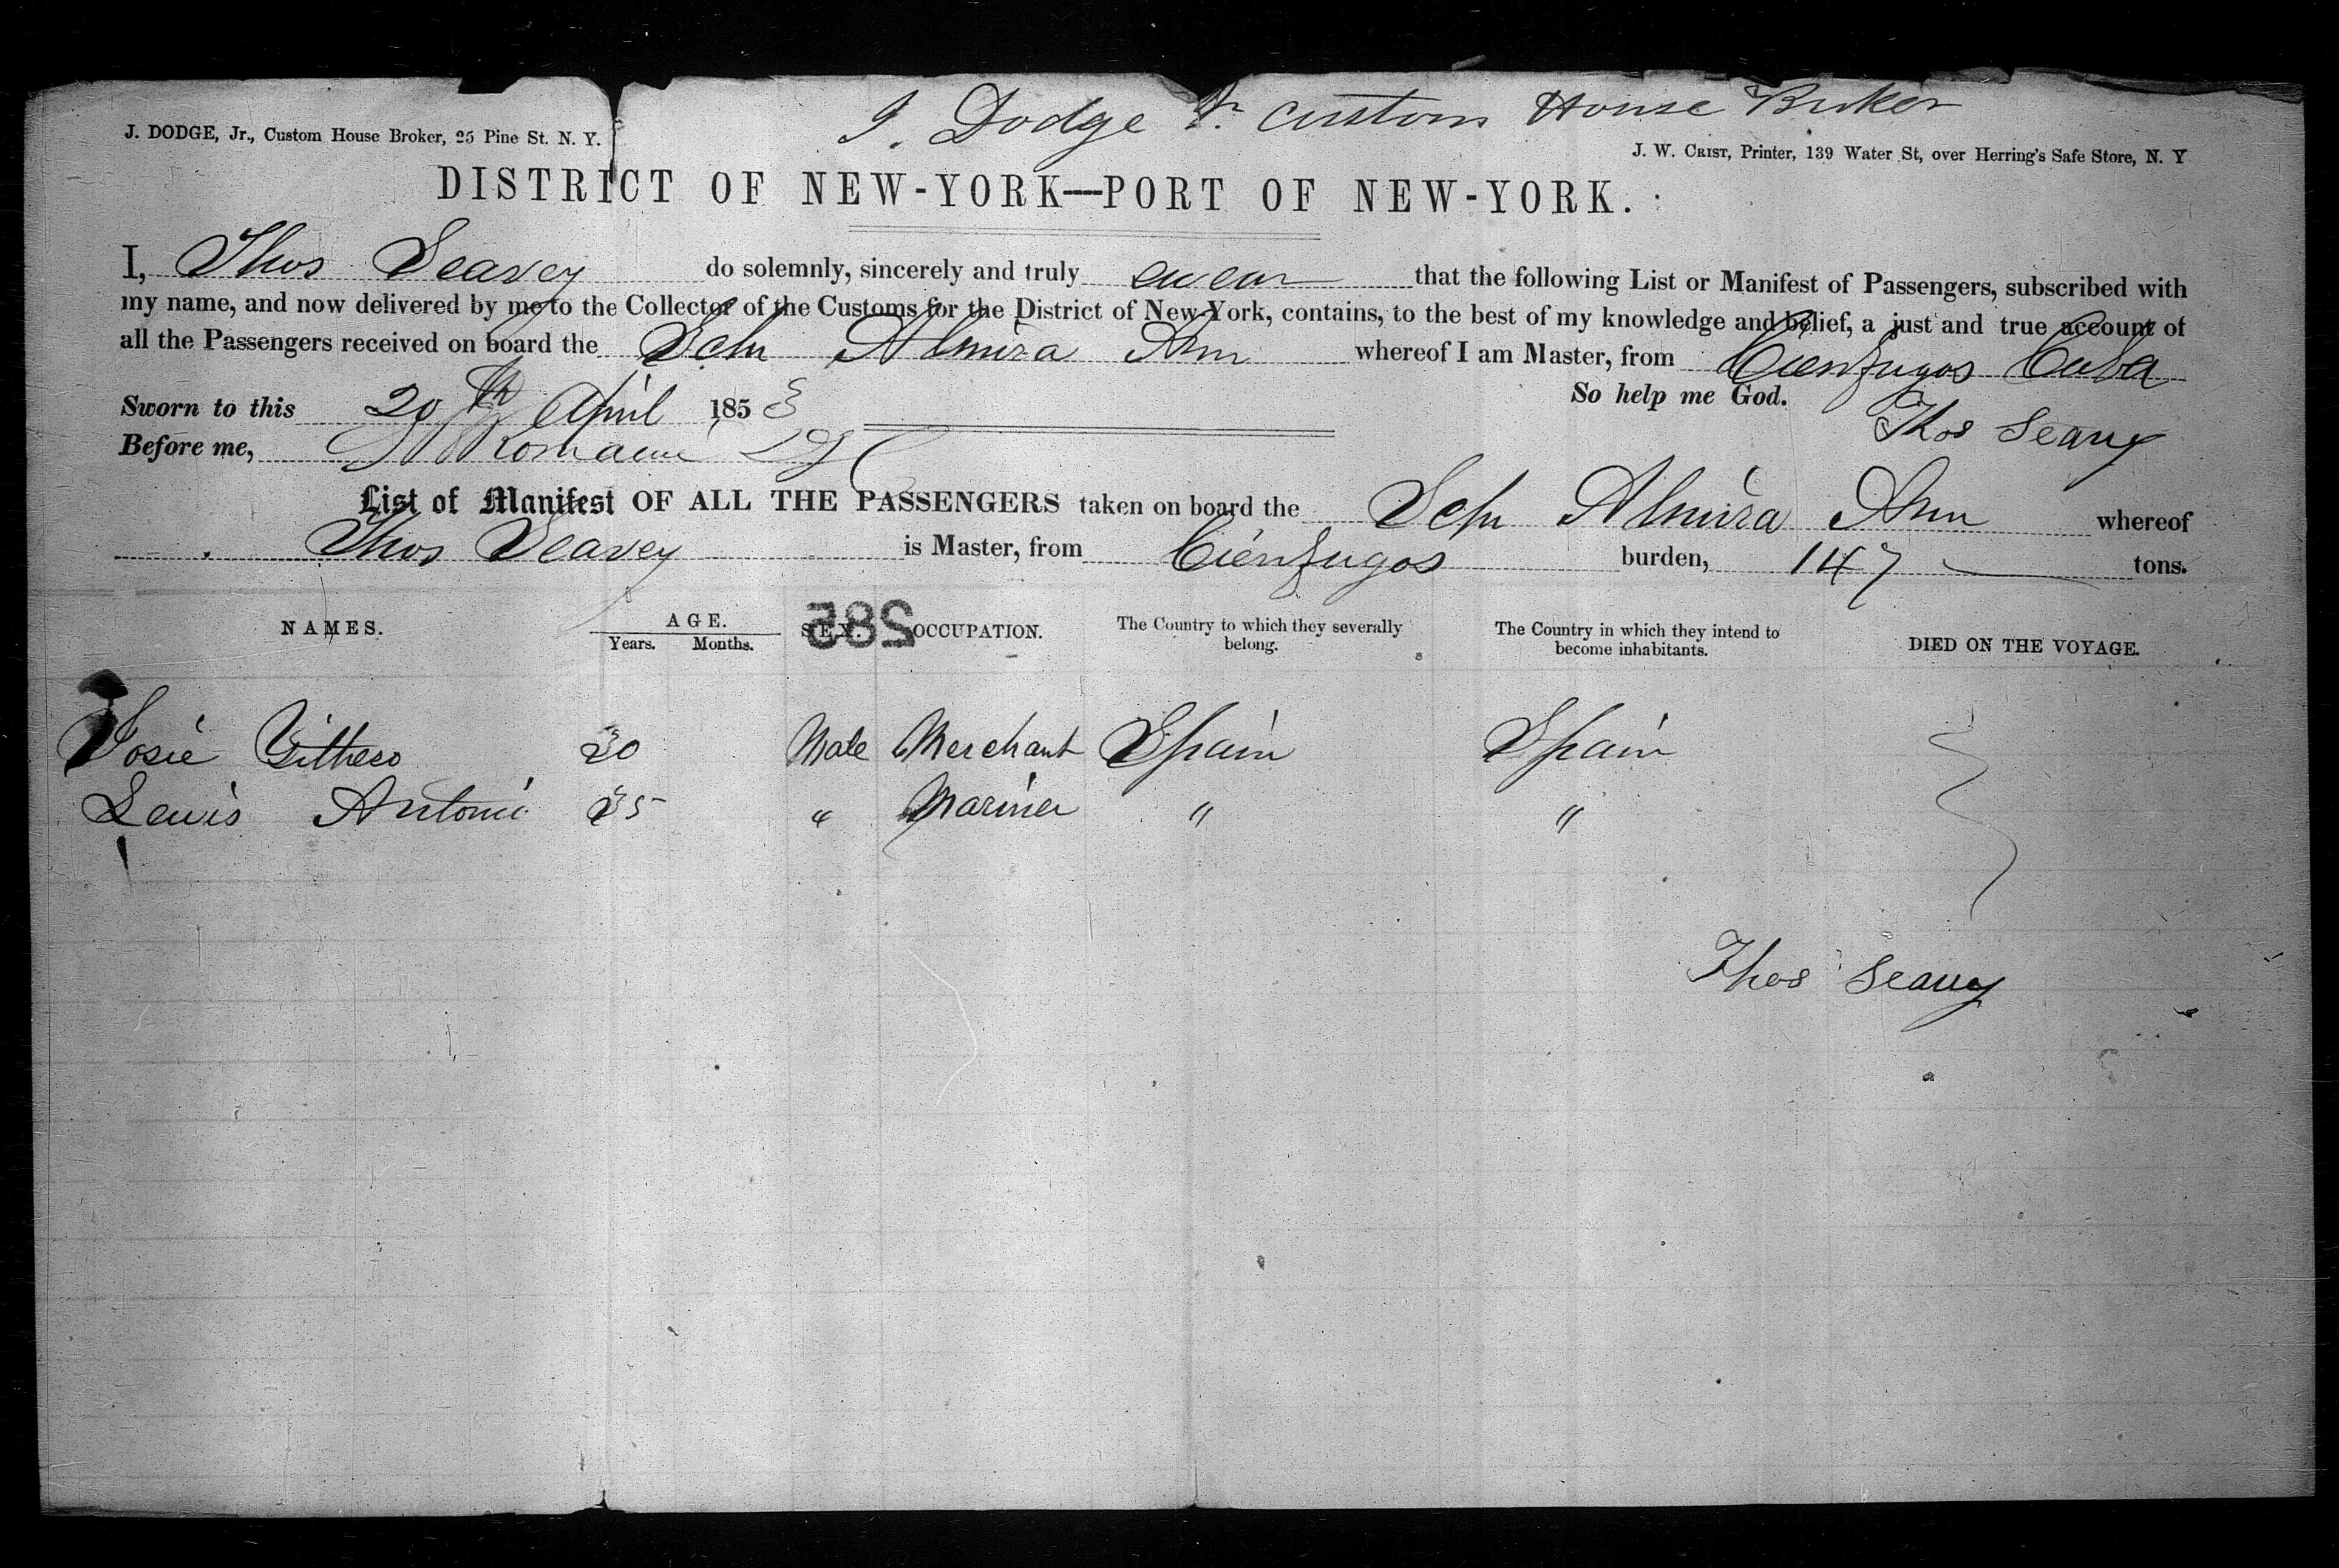 J. Dodge Jr. Custom House Broker
J. DODGE, Jr., Custom House Broker, 25 Pine St. N. Y.
J. W. CRIST, Printer, 139 Water St, over Herring's Safe Store, N. Y
DISTRICT OF NEW-YORK—PORT OF NEW-YORK.
I, Thos Seavey do solemnly, sincerely and truly swear that the following List or Manifest of Passengers, subscribed with
my name, and now delivered by me to the Collector of the Customs for the District of New-York, contains, to the best of my knowledge and belief, a just and true account of
all the Passengers received on board the Schr Almira Ann whereof I am Master, from Cienfugos Cuba
So help me God.
Sworn to this 20th April 1853
Thos Seavey
Before me,
List of Manifest OF ALL THE PASSENGERS taken on board the Schr Almira Ann whereof
Thos Seavey is Master, from Cienfugos burden, 147 tons.
285
NAMES. AGE. SEX. OCCUPATION. The Country to which they severally belong. The Country in which they intend to become inhabitants. DIED ON THE VOYAGE.
Years. Months.
Josie 30 Male Merchant Spain Spain
Lewis Antonio 35 " Mariner " "
Thos Seavey